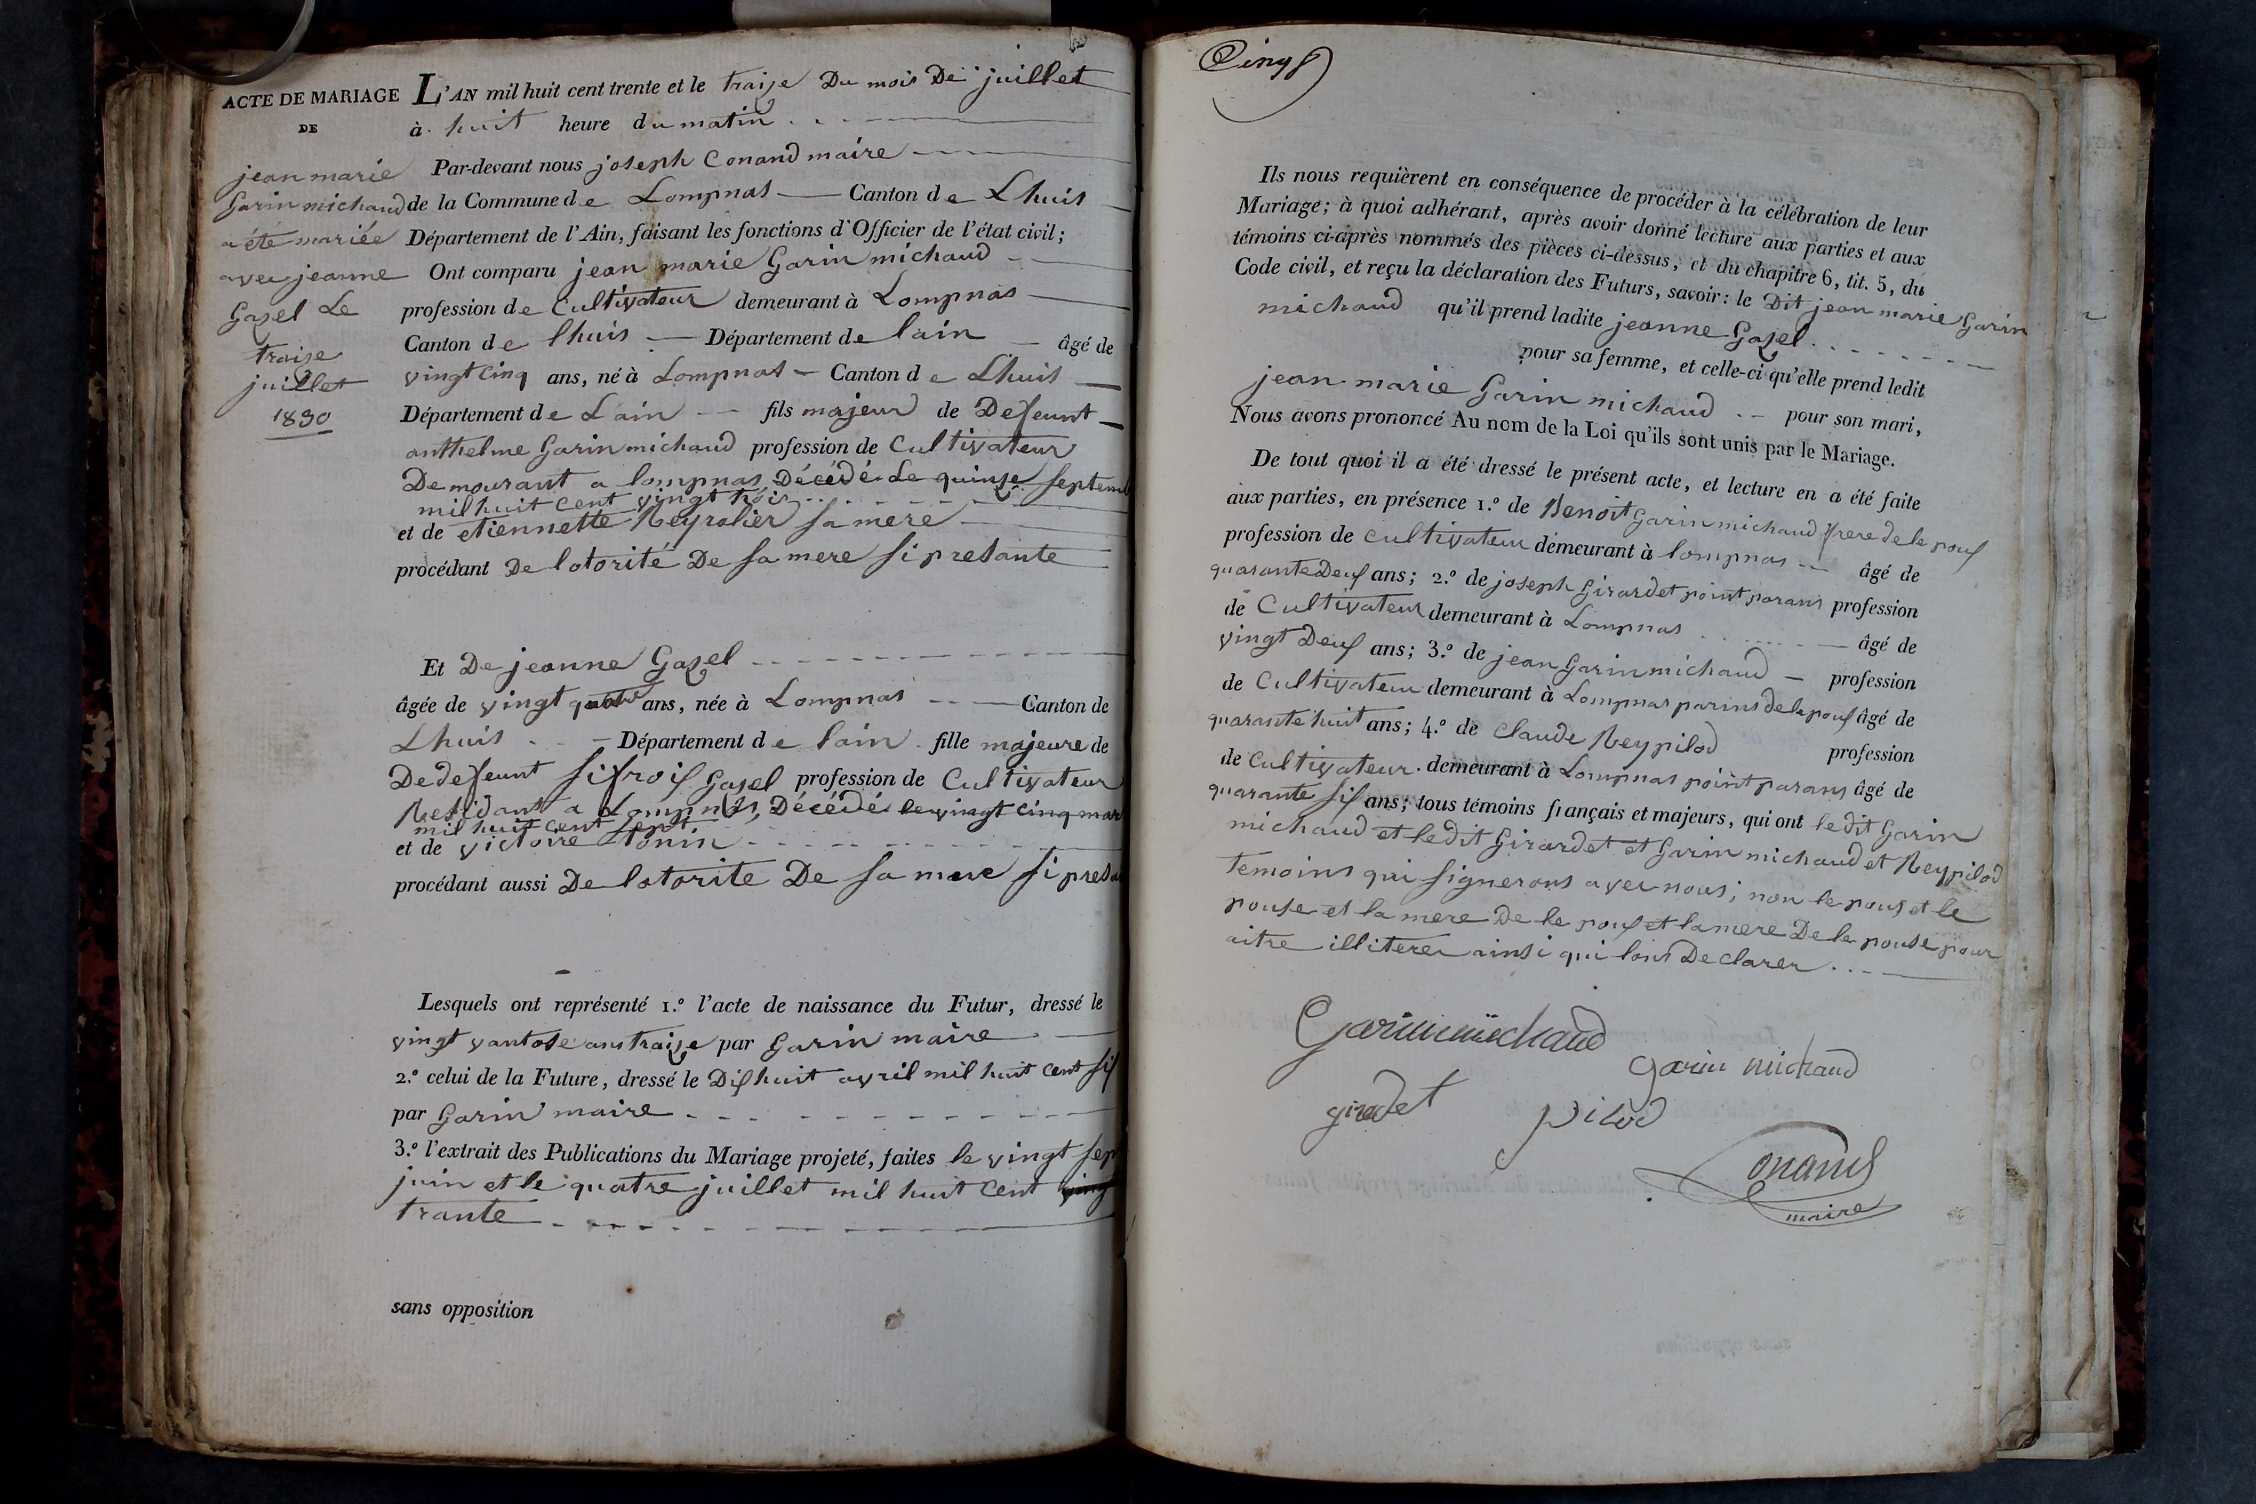 ACTE DE MARIAGE
DE
jean marie
Garin michaud
a été mariée
avec jeanne
Gazel Le
traize
juillet
1830
L'AN mil huit cent trente et le traize Du mois De juillet
à huit heure du matin
Par-devant nous joseph Conand maire
de la Commune de Lompnas Canton de Lhuis
Département de l'Ain, faisant les fonctions d'Officier de l'état civil;
Ont comparu jean marie Garin michaud
profession de Cultivateur demeurant à Lompnas
Canton de lhuis Département de lain âgé de
vingt cinq ans, né à Lompnas Canton de Lhuis
Département de Lain fils majeur de Defeunt
anthelme Garin michaud profession de Cultivateur
Demourant a lompnas Décédé Le quinze septem
mil huit cent vingt trois
et de etiennette Reyrolier sa mere
procédant De lotorité De sa mere si presante
Et De jeanne Gazel
âgée de vingt quatre ans, née à Lompnas Canton de
Lhuis Département de lain fille majeure de
De defeunt sifroif Gazel profession de Cultivateur
Residant a Lompnas, Décédé le vingt cinq mar
mil huit cent sept
et de victoire Tonin
procédant aussi De lotorite De sa mere si presa
Lesquels ont représenté 1.º l'acte de naissance du Futur, dressé le
vingt vantose ans traize par Garin maire
2.º celui de la Future, dressé le Dix huit avril mil huit cent six
par Garin maire
3.º l'extrait des Publications du Mariage projeté, faites le vingt sep
juin et le quatre juillet mil huit cent ving
trante
sans opposition
Cinq
Ils nous requièrent en conséquence de procéder à la célébration de leur
Mariage; à quoi adhérant, après avoir donné lecture aux parties et aux
témoins ci-après nommés des pièces ci-dessus, et du chapitre 6, tit. 5, du
Code civil, et reçu la déclaration des Futurs, savoir: le Dit jean marie Garin
michaud qu'il prend ladite jeanne Gazel
pour sa femme, et celle-ci qu'elle prend ledit
jean marie Garin michaud pour son mari,
Nous avons prononcé Au nom de la Loi qu'ils sont unis par le Mariage.
De tout quoi il a été dressé le présent acte, et lecture en a été faite
aux parties, en présence 1.º de Benoit Garin michaud frere de le pouf
profession de cultivateur demeurant à lompnas âgé de
quarante Deux ans; 2.º de joseph Girardet point parans profession
de Cultivateur demeurant à Lompnas âgé de
vingt Deux ans; 3.º de jean Garin michaud profession
de Cultivateur demeurant à Lompnas parins de le pouf âgé de
quarante huit ans; 4.º de Claude Reypilod profession
de Cultivateur demeurant à Lompnas point parans âgé de
quarante six ans; tous témoins français et majeurs, qui ont le dit Garin
michaud et le dit Girardet et Garin michaud et Reypilod
temoins qui signerons avec nous; non le pouf et le
pouse et la mere De le pouf et la mere De le pouse pour
aitre illiterer ainsi qui lont Declarer
Garin michaud
Garin michaud
giradet
pilod
Conand
maire